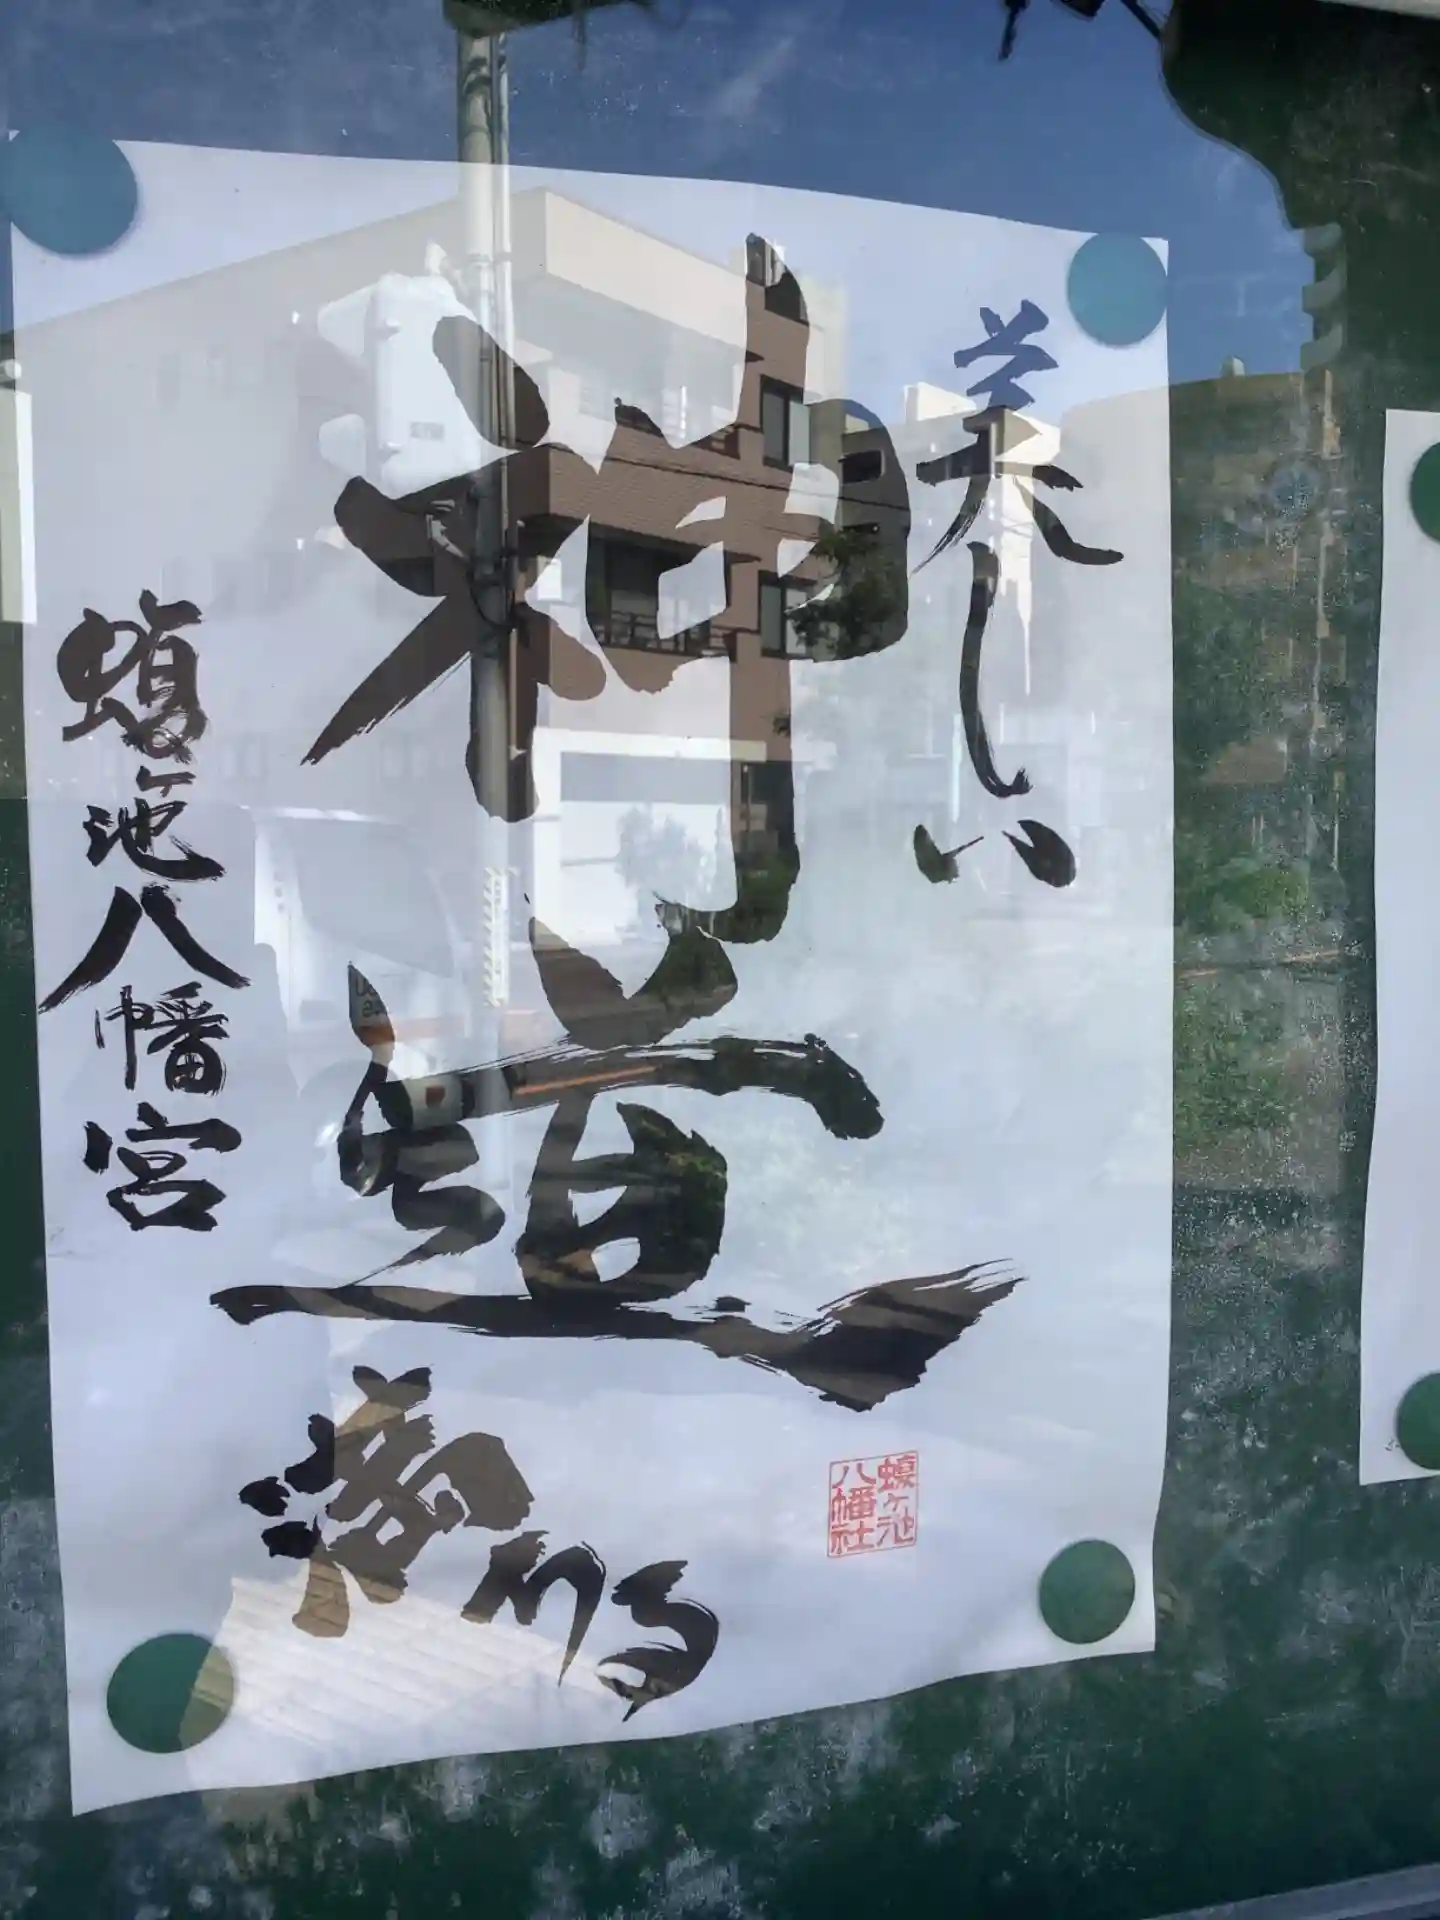 美しい
神道
満つる
蝮ヶ池八幡宮
蝮ヶ池
八幡社